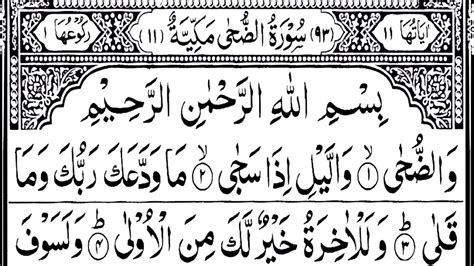 اٰيَاتُهَا ١١ (٩٣) سُوْرَةُ الضُّحٰى مَكِّيَّةٌ (١١) رُكُوْعُهَا ١
بِسْمِ اللّٰهِ الرَّحْمٰنِ الرَّحِيْمِ
وَالضُّحٰى ۙ﴿١﴾ وَالَّيْلِ اِذَا سَجٰى ۙ﴿٢﴾ مَا وَدَّعَكَ رَبُّكَ وَمَا
قَلٰى ؕ﴿٣﴾ وَلَلْاٰخِرَةُ خَيْرٌ لَّكَ مِنَ الْاُوْلٰى ؕ﴿٤﴾ وَلَسَوْفَ